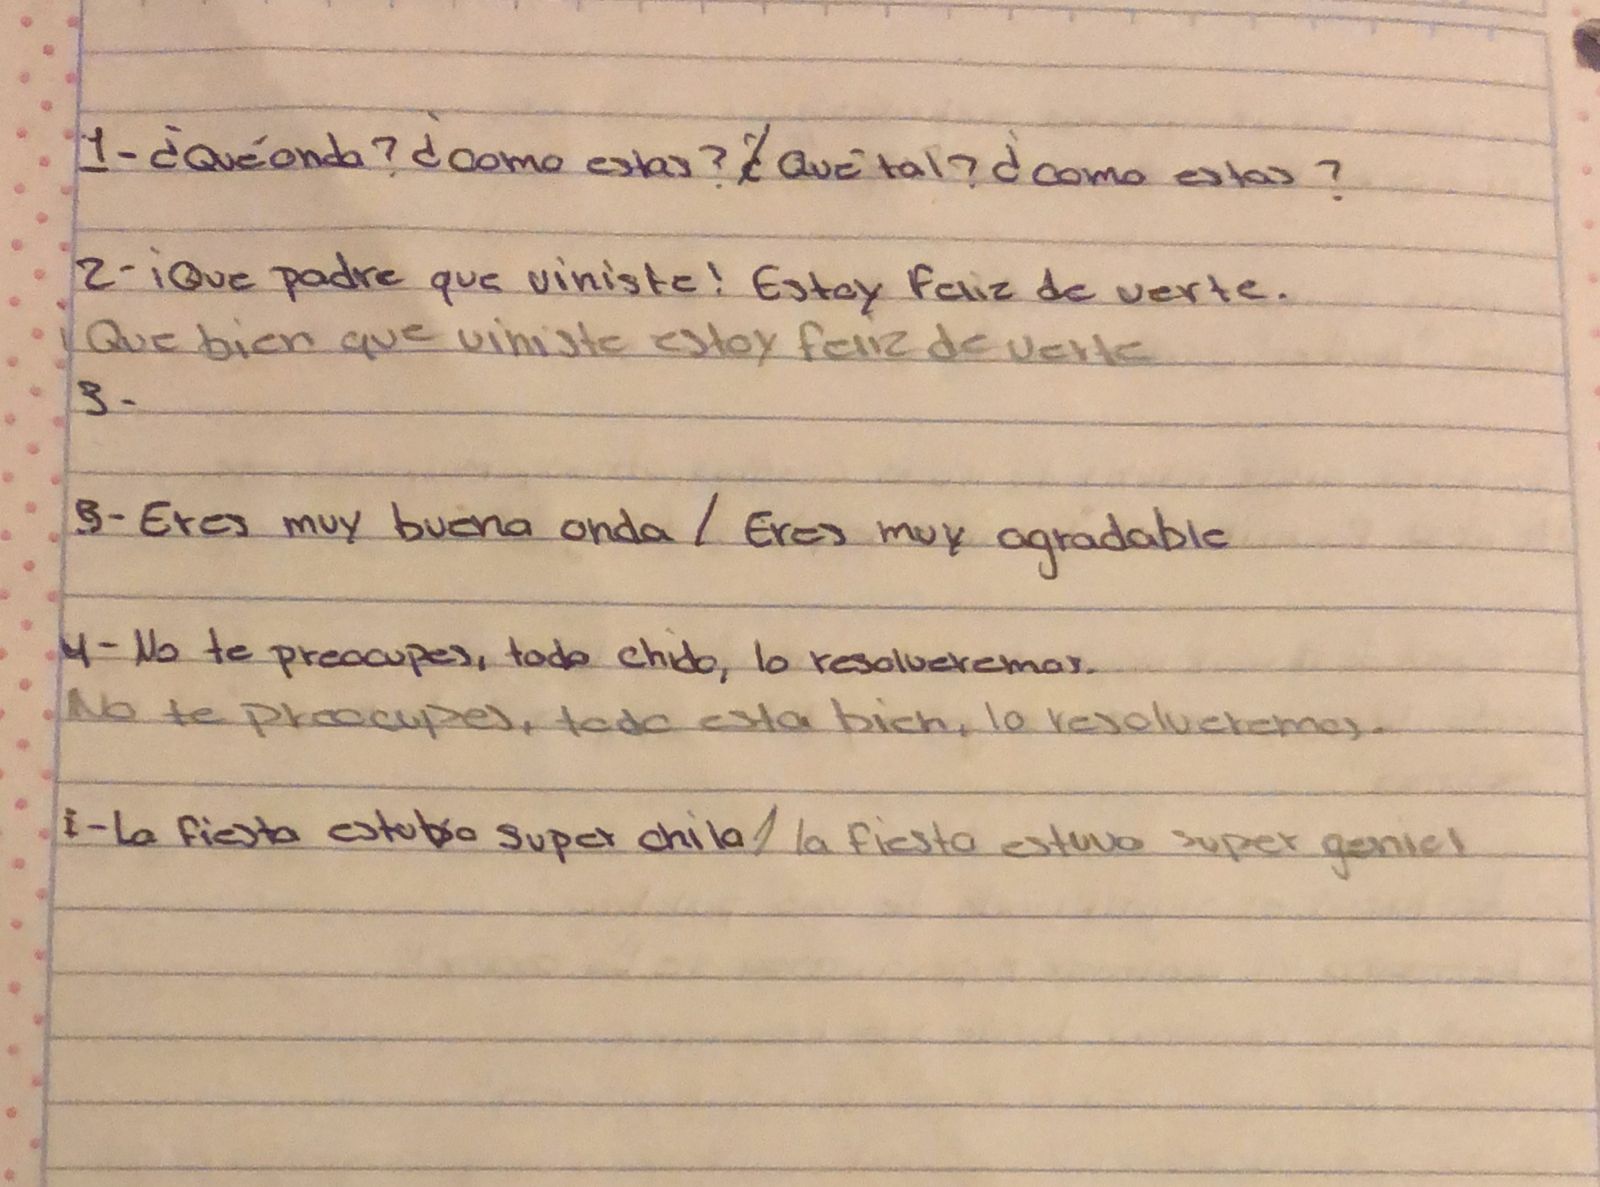 1- ¿Qué onda? ¿como estas? / ¿Qué tal? ¿como estas?
2- ¡Que padre que viniste! Estoy feliz de verte.
¡Que bien que viniste estoy feliz de verte
3-
3- Eres muy buena onda / Eres muy agradable
4- No te preocupes, todo chido, lo resolveremos.
No te preocupes, todo esta bien, lo resolveremos.
La fiesta super chila / la fiesta estuvo super genial